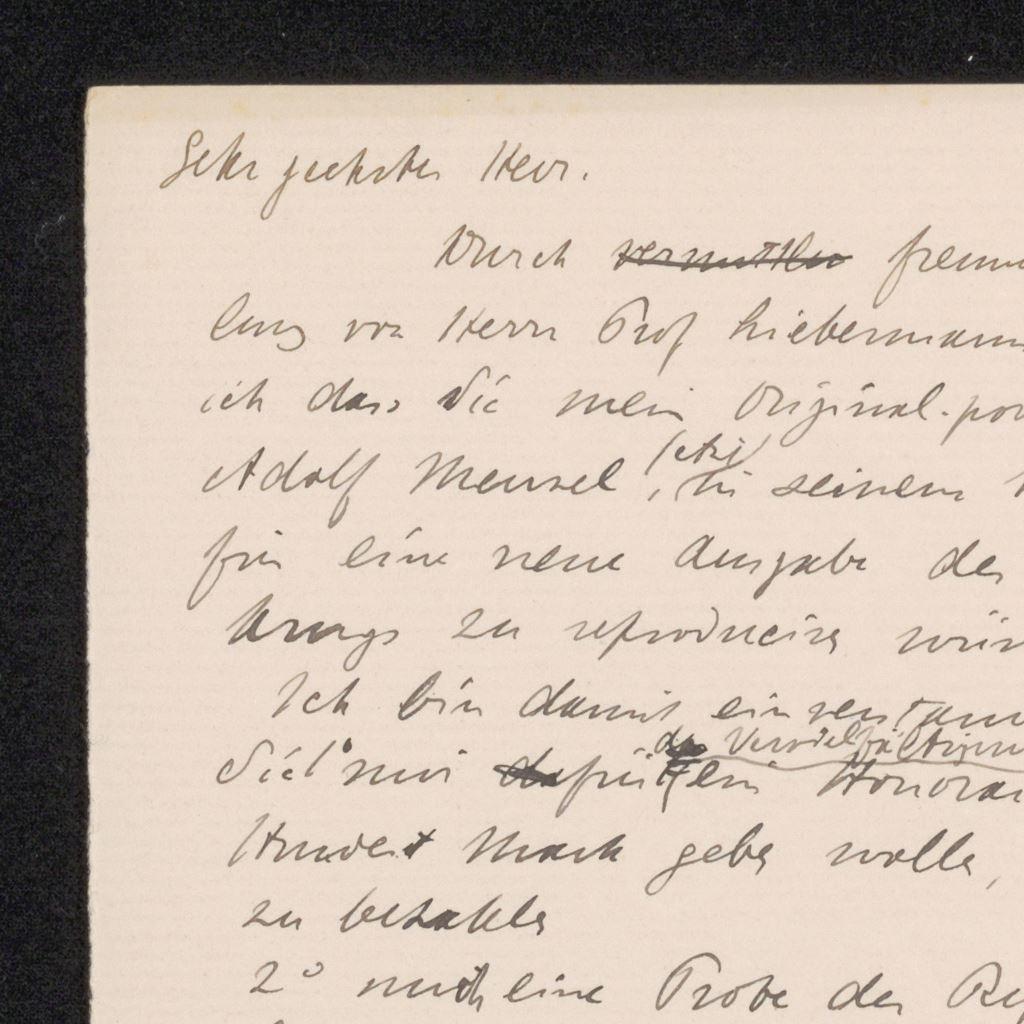 Sehr geehrter Herr.
Durch vermittlu freun
lung von Herrn Prof Liebermann
ich dass Sie mein Original-por
Adolf Menzel, (etzi) in seinem
für eine neue Ausgabe des
zu reproduciren wün
Ich bin damit einverstann
der Vervielfältigun
Sie 1° mir dafür ein Honorar
Hundert Mark geben wollen,
zu bezahlen
2° mich eine Probe der Re